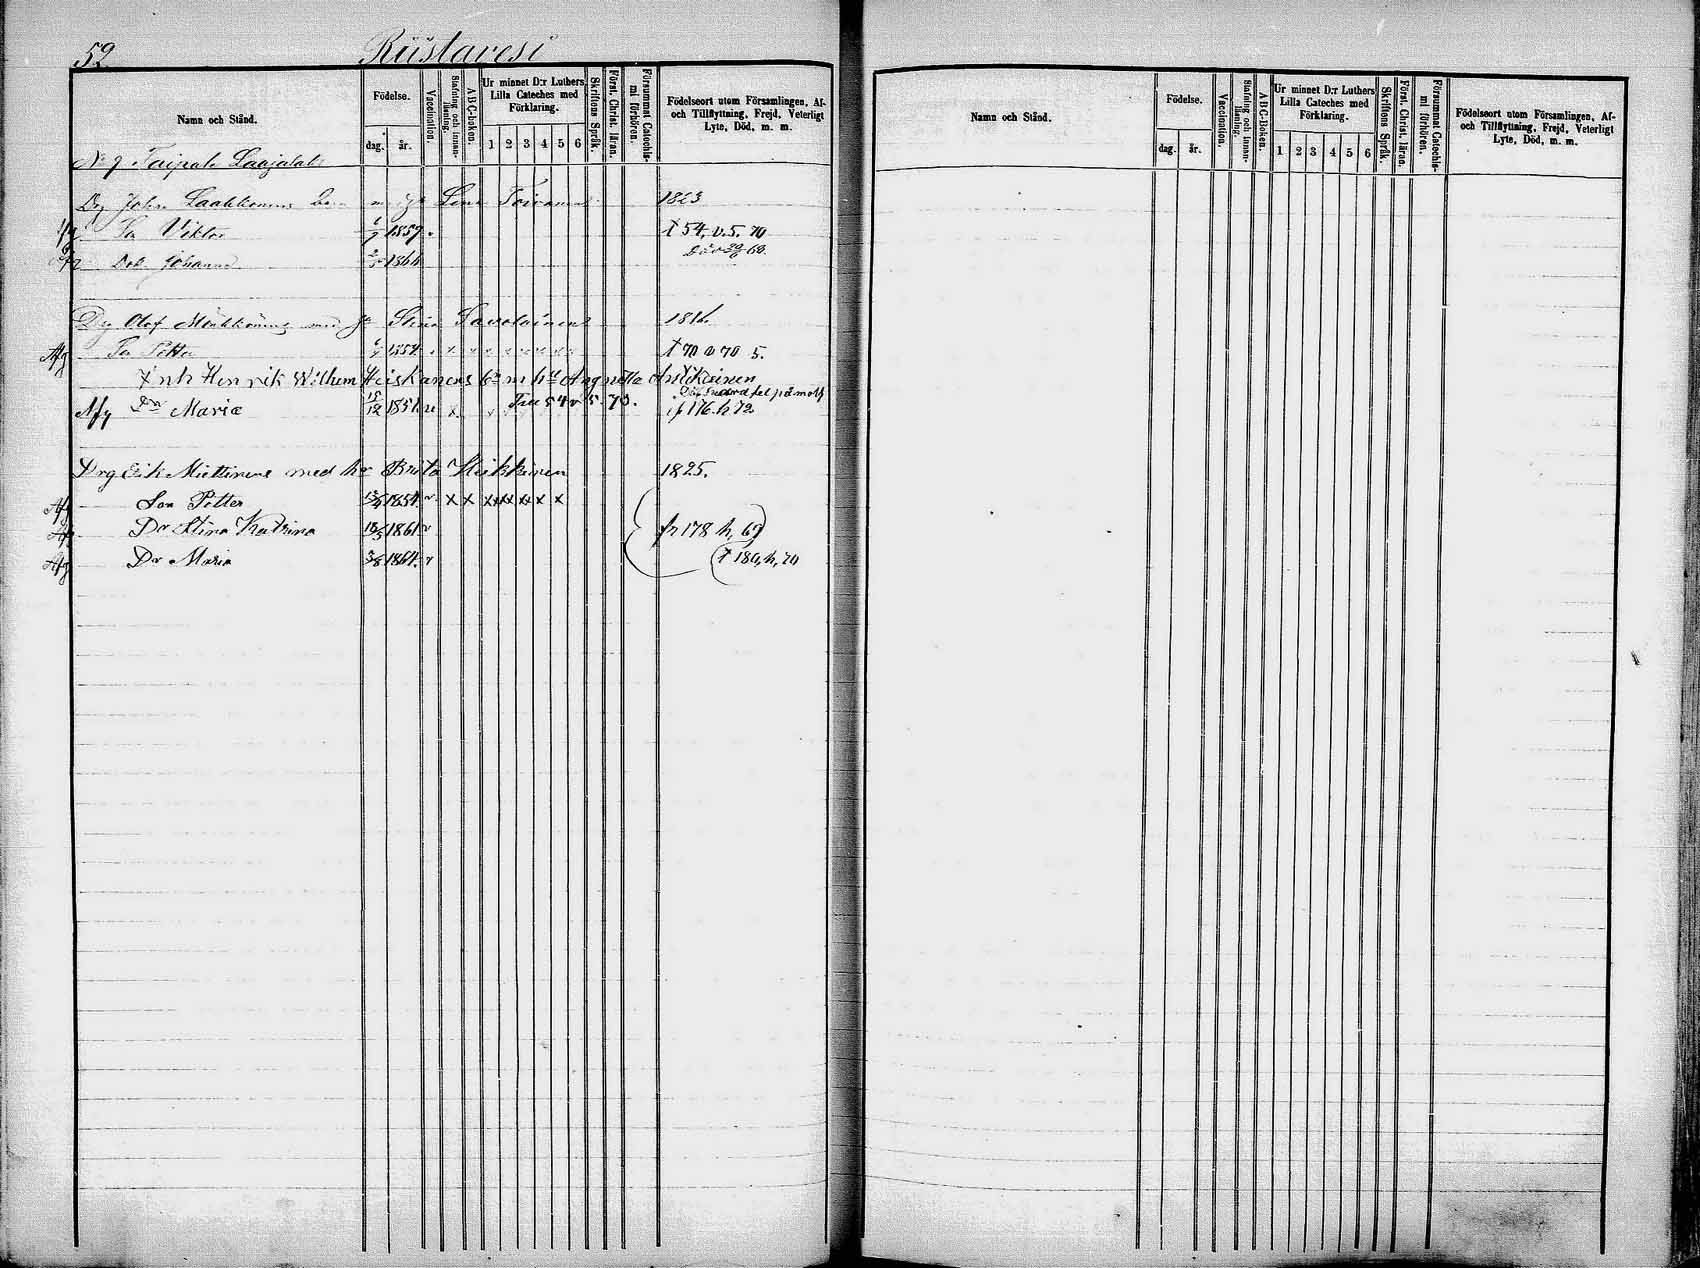 52
Riistavesi
Namn och Stånd.
Födelse.
dag.
år.
Vaccination.
Stafning och innanläsning.
ABC-boken.
Ur minnet D:r Luthers Lilla Cateches med Förklaring.
1 2 3 4 5 6
Skriftens Språk.
Förut. Christ. läran.
Försummat Catechismi förhören.
Födelseort utom Församlingen, Af- och Tillflyttning, Frejd, Veterligt Lyte, Död, m. m.
Taipale Laajalaht
Johan Laakkonens Lena Toivanen 1823
Viktor 1859 54, v. 5. 70
Johanna
Drg Olof Stina Savolainen
Afg Petter 70 v 70 5.
Inh Henrik Wilhem Heiskanens m Angnetta Antikainen
Afg Dr Maria 12 1851 54 v 5. 73. 176. h 72
Drg Erik Miettinens med hu Brita Heikkinen 1825.
Afg Son Petter 1854. v x x x x x x x x
Afg Dr Stina Katrina 1861 v fr 178 h, 69
Afg Dr Maria 3/8 1864. v 180, h, 70
Namn och Stånd.
Födelse.
dag.
år.
Vaccination.
Stafning och innanläsning.
ABC-boken.
Ur minnet D:r Luthers Lilla Cateches med Förklaring.
1 2 3 4 5 6
Skriftens Språk.
Förut. Christ. läran.
Försummat Catechismi förhören.
Födelseort utom Församlingen, Af- och Tillflyttning, Frejd, Veterligt Lyte, Död, m. m.